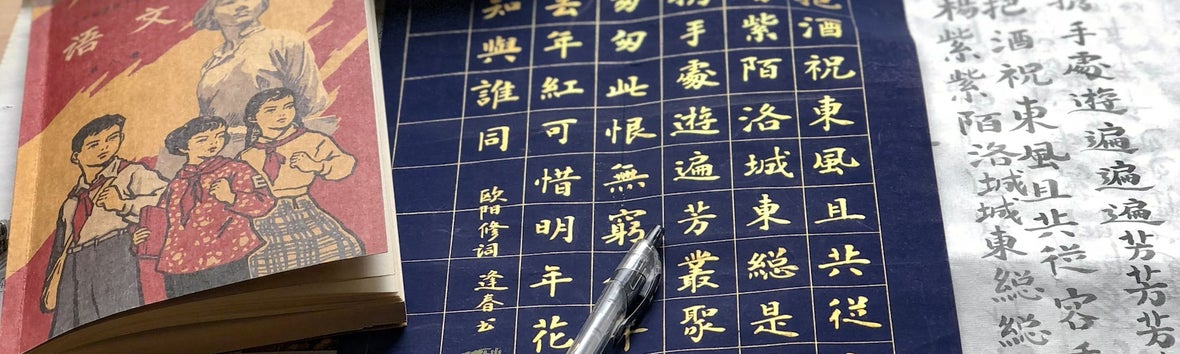 語文
把酒祝東風且共從
紫陌洛城東緫是
手處遊遍芳叢聚
匆匆此恨無窮
去年紅可惜明年花
知與誰同
欧阳修詞 逢春书
手處遊遍遍遍芳芳芳
把酒祝東風且共從容
楊紫紫陌洛城城東緫緫